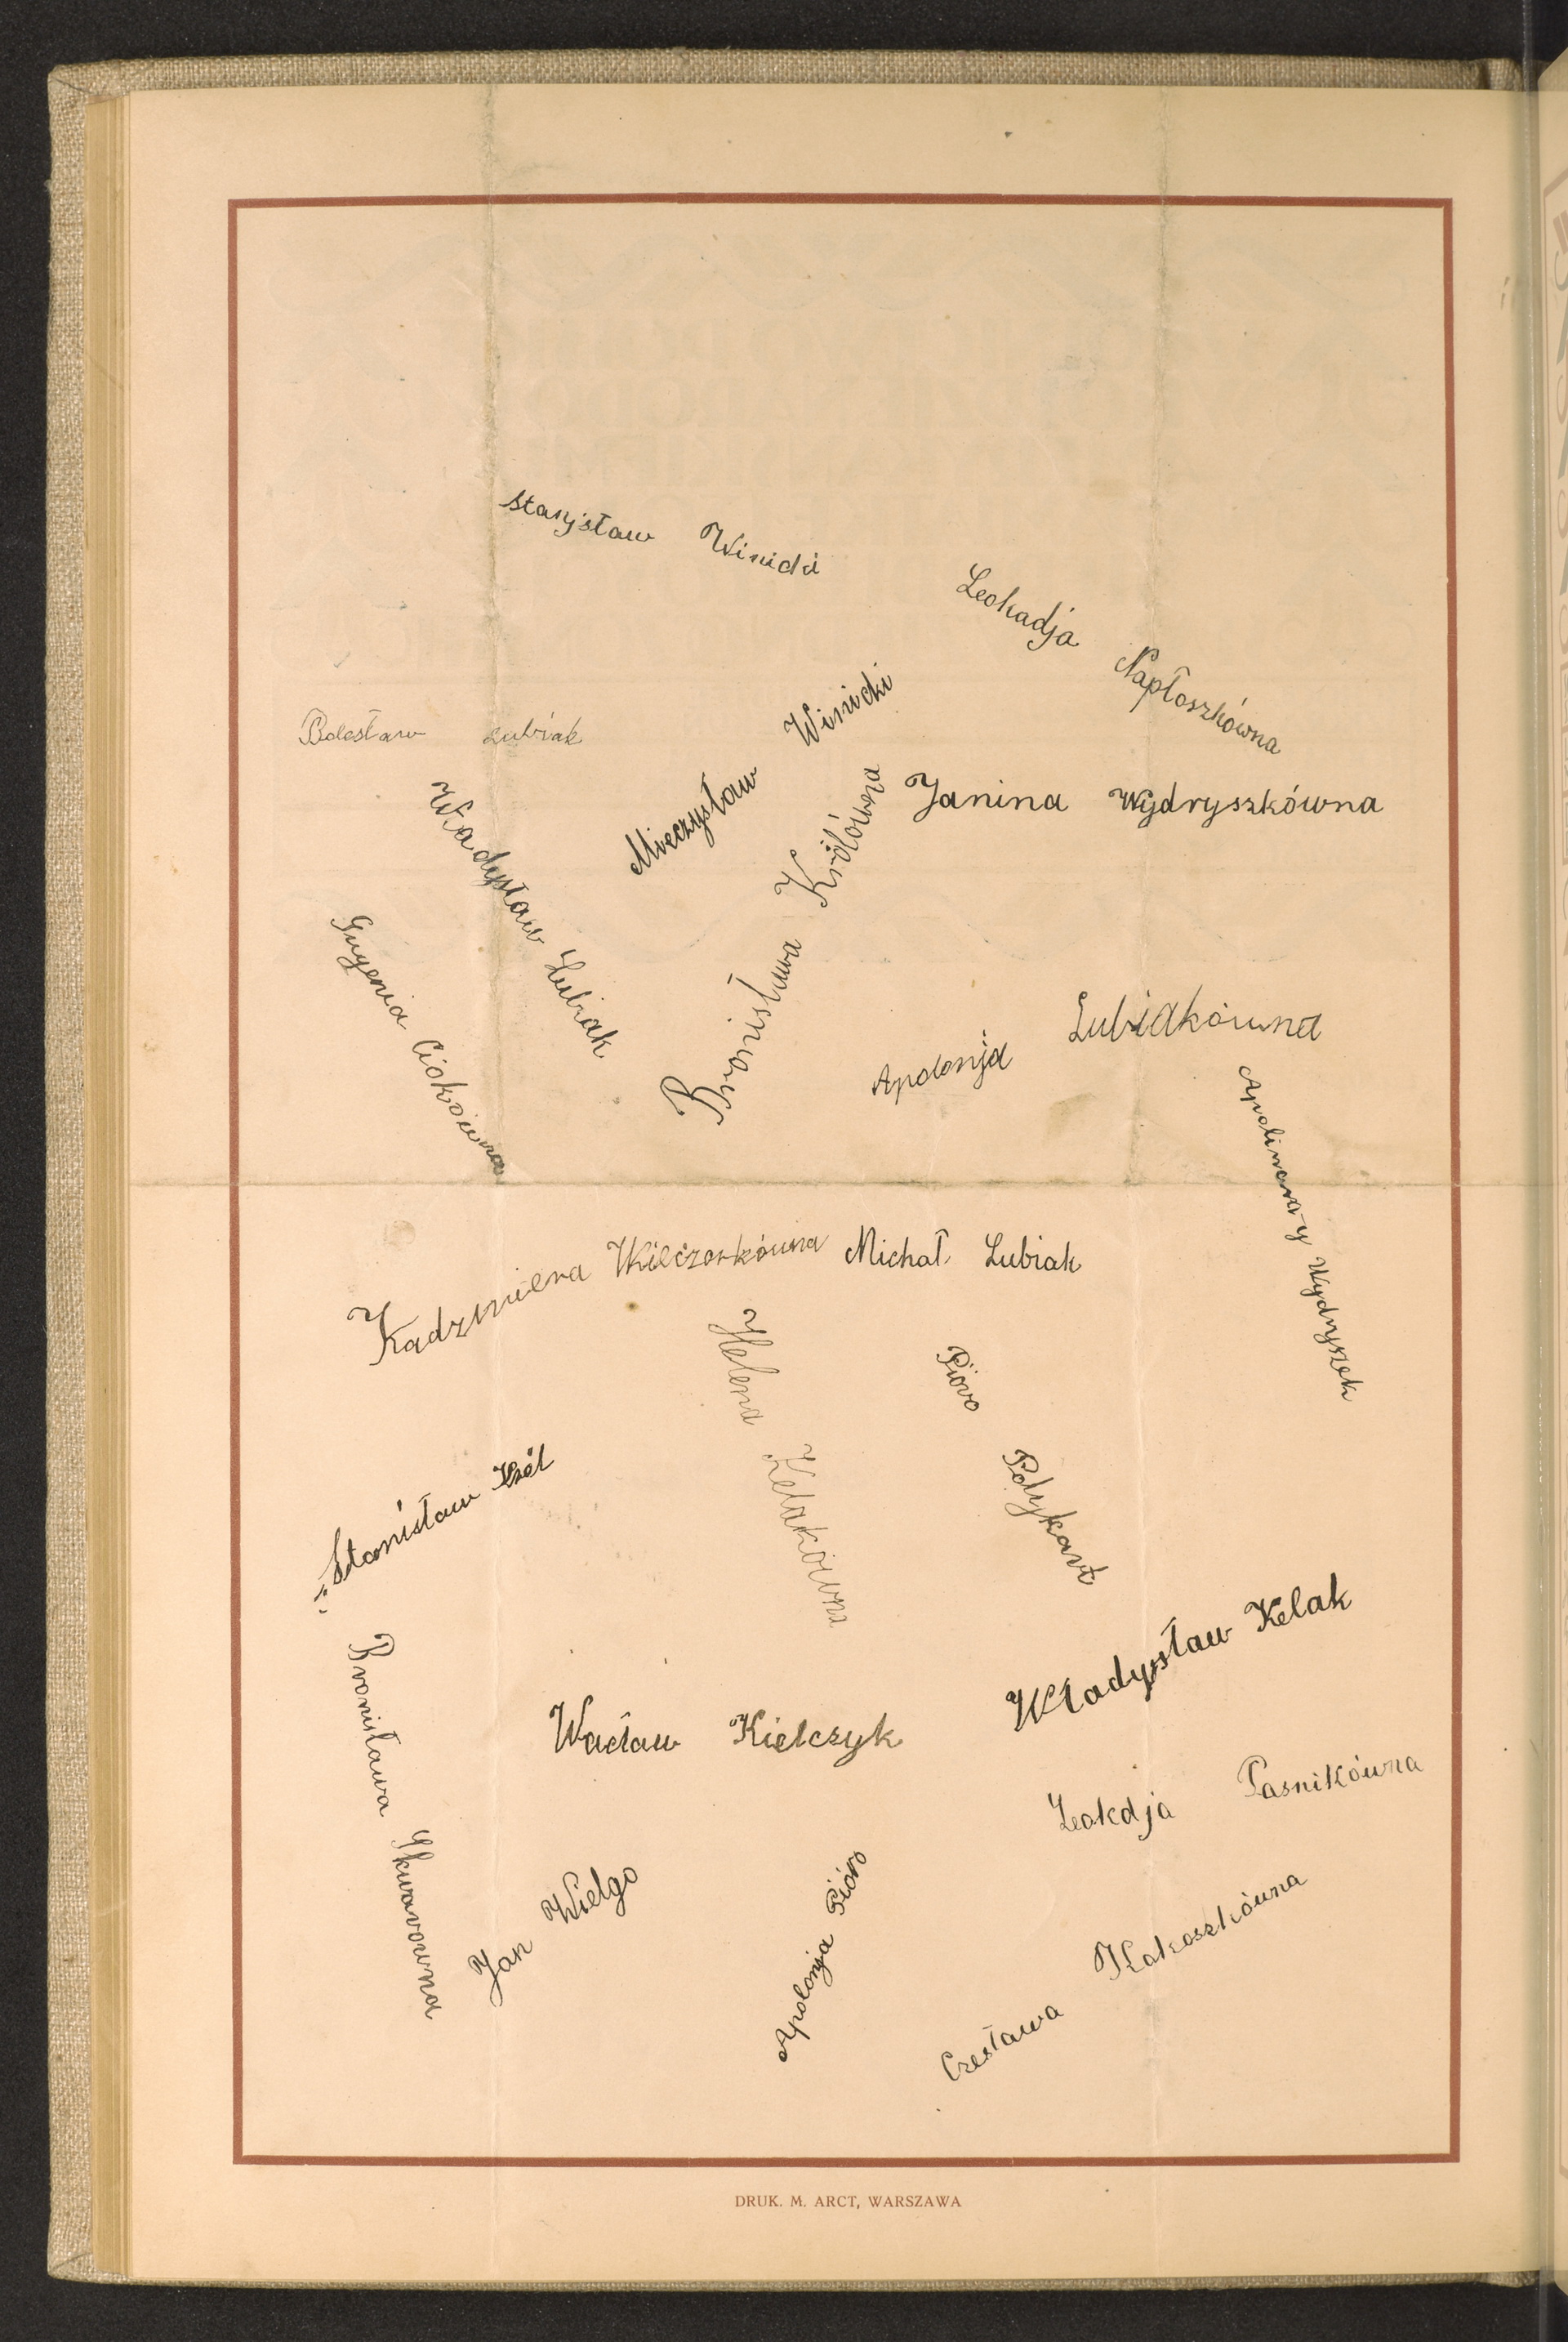 Stanjsław Winicki
Leokadja Napłoszkówna
Bolesław Lubiak
Mieczysław Winicki
Janina Wydryszkówna
Władysław Lubiak
Królówna
Eugenia Ciokówna
Apolonja Lubiakówna
Apolinary Wydryszek
Kadzmiera Wieczorkówna
Michał Lubiak
Helena Kelakówna
Pióro Polykart
Stanisław Król
Władysław Kelak
Bronisława Skwarowna
Wacław Kielczyk
Leokdja Pasnikówna
Jan Wielgo
Apolonja Pióro
Czesława Kokoszkówna
DRUK. M. ARCT, WARSZAWA